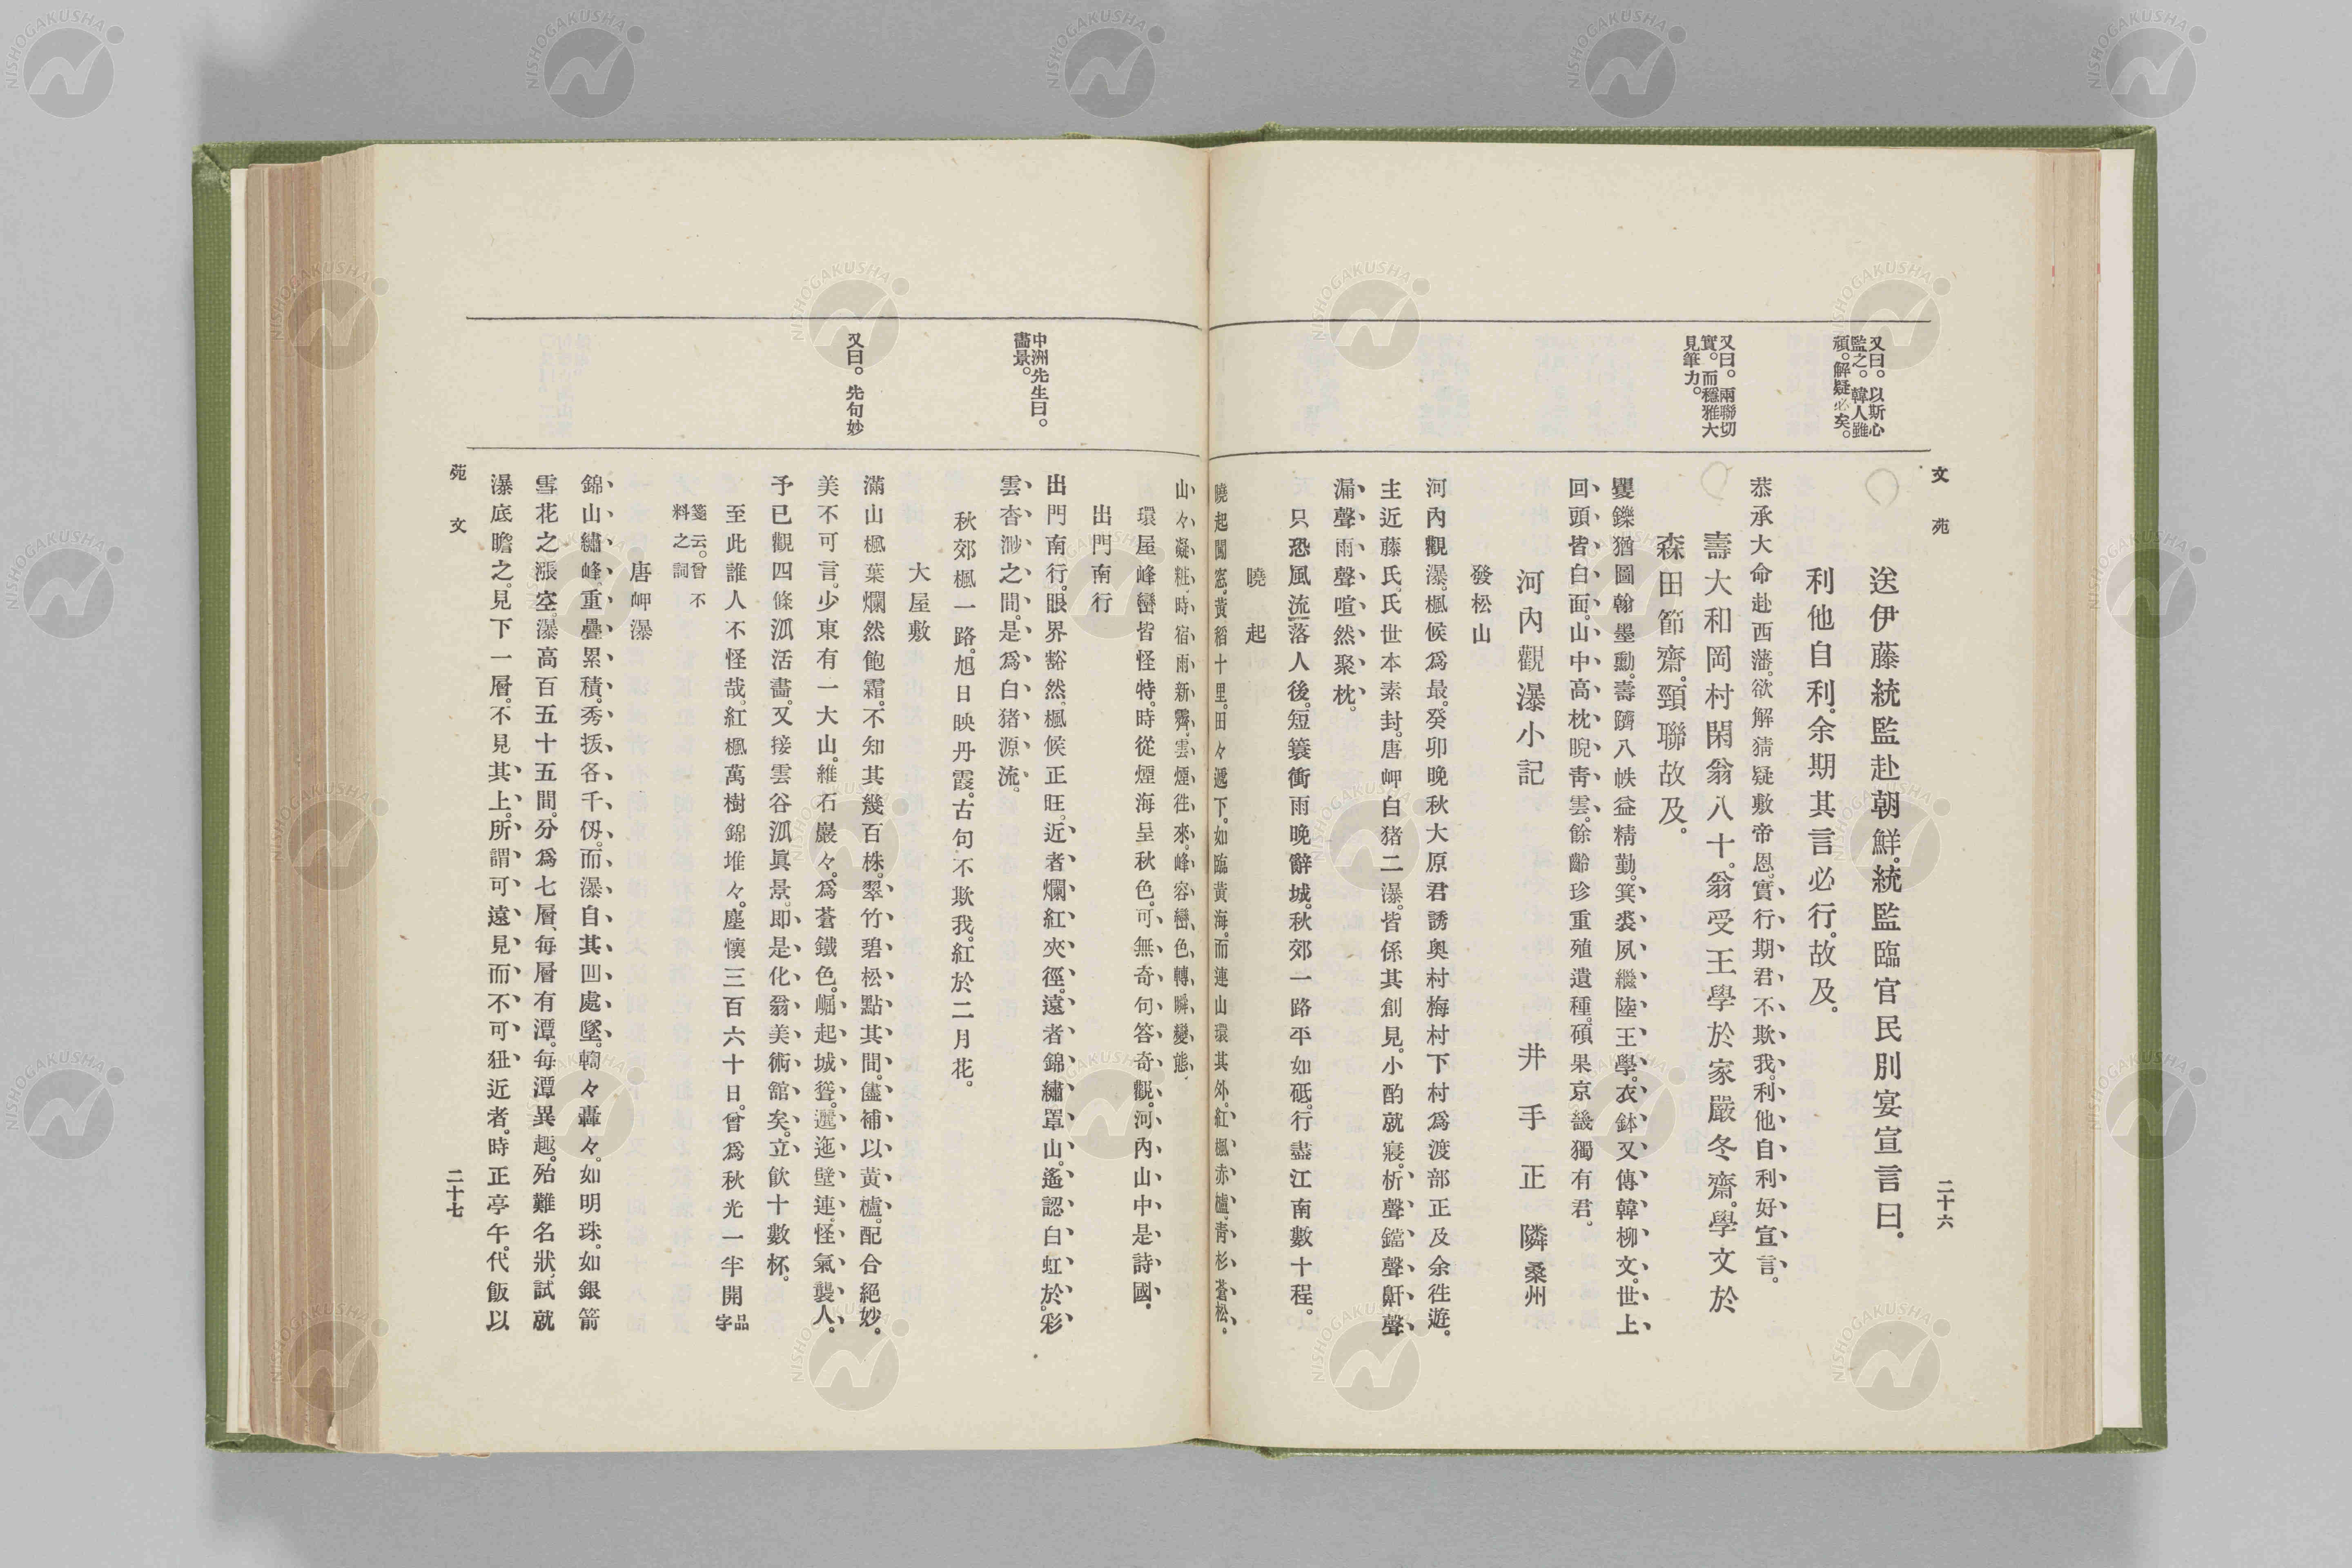 文苑
二十六
又曰。以斯心
監之。韓人雖
頑。解疑必矣。
又曰。兩聯切
實。而穩雅大
見筆力。
送伊藤統監赴朝鮮。統監臨官民別宴宣言曰。
利他自利。余期其言必行。故及。
恭承大命赴西藩。欲解猜疑敷帝恩。實行期君不欺我。利他自利好宣言。
壽大和岡村閑翁八十。翁受王學於家嚴冬齋。學文於
森田節齋。頸聯故及。
矍鑠猶圖翰墨勳。壽躋八帙益精勤。箕裘夙繼陸王學。衣鉢又傳韓柳文。世上
回頭皆白面。山中高枕睨靑雲。餘齡珍重殖遺種。碩果京畿獨有君。
河內觀瀑小記 井手正隣 桑州
發松山
河內觀瀑。楓候爲最。癸卯晚秋大原君誘奥村梅村下村爲渡部正及余徃遊。
主近藤氏。氏世本素封。唐岬白猪二瀑。皆係其創見。小酌就寢。柝聲鐺聲鼾聲
漏聲雨聲喧然聚枕。
只恐風流落人後。短簑衝雨晚辭城。秋郊一路平如砥。行盡江南數十程。
曉起
曉起闖窓。黃稻十里。田々遞下。如臨黃海。而連山環其外。紅楓赤櫨。靑杉蒼松。
山々凝粧。時宿雨新霽。雲煙徃來。峰容巒色。轉瞬變態。
環屋峰巒皆怪特。時從煙海呈秋色。可無奇句答奇觀。河內山中是詩國。
出門南行
中洲先生曰。
畵景。
出門南行。眼界豁然。楓候正旺。近者爛紅夾徑。遠者錦繡罩山。遙認白虹於彩
雲杳渺之間。是爲白猪源流。
秋郊楓一路。旭日映丹霞。古句不欺我。紅於二月花。
大屋敷
又曰。先句妙
滿山楓葉爛然飽霜。不知其幾百株。翠竹碧松點其間。儘補以黃櫨。配合絕妙。
美不可言。少東有一大山。維石巖々。爲蒼鐵色。崛起城聳。邐迤壁連。怪氣襲人。
予已觀四條派活畵。又接雲谷派眞景。即是化翁美術館矣。立飮十數杯。
至此誰人不怪哉。紅楓萬樹錦堆々。塵懷三百六十日。曾爲秋光一半開 品字
箋云。曾不
料之詞
唐岬瀑
錦山繡峰。重疊累積。秀拔各千仭。而瀑自其凹處墜。輷々轟々。如明珠。如銀箭
雪花之漲空。瀑高百五十五間。分爲七層。每層有潭。每潭異趣。殆難名狀。試就
瀑底瞻之。見下一層。不見其上。所謂可遠見而不可狃近者。時正亭午。代飯以
文苑
二十七